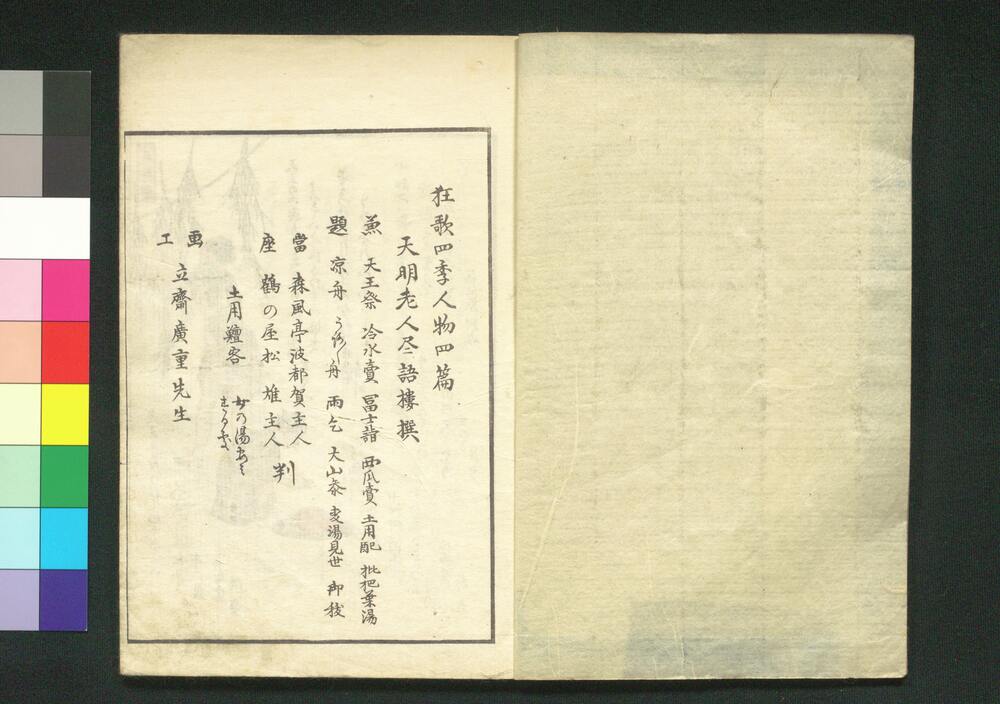 狂歌四季人物四篇
天明老人尽語樓撰
兼 天王祭 冷水賣 冨士詣 西瓜賣 土用配 枇杷葉湯
題 凉舟 うろ〳〵舟 雨乞 大山参 麦湯見世 御祓
當 森風亭波都賀主人
座 鶴の屋松雄主人 判
土用鰻客 女の湯あみ
する家
画 立齋廣重先生
工